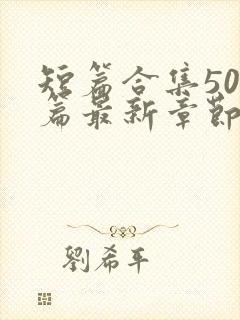 短篇合集50
篇最新章節
劉希平